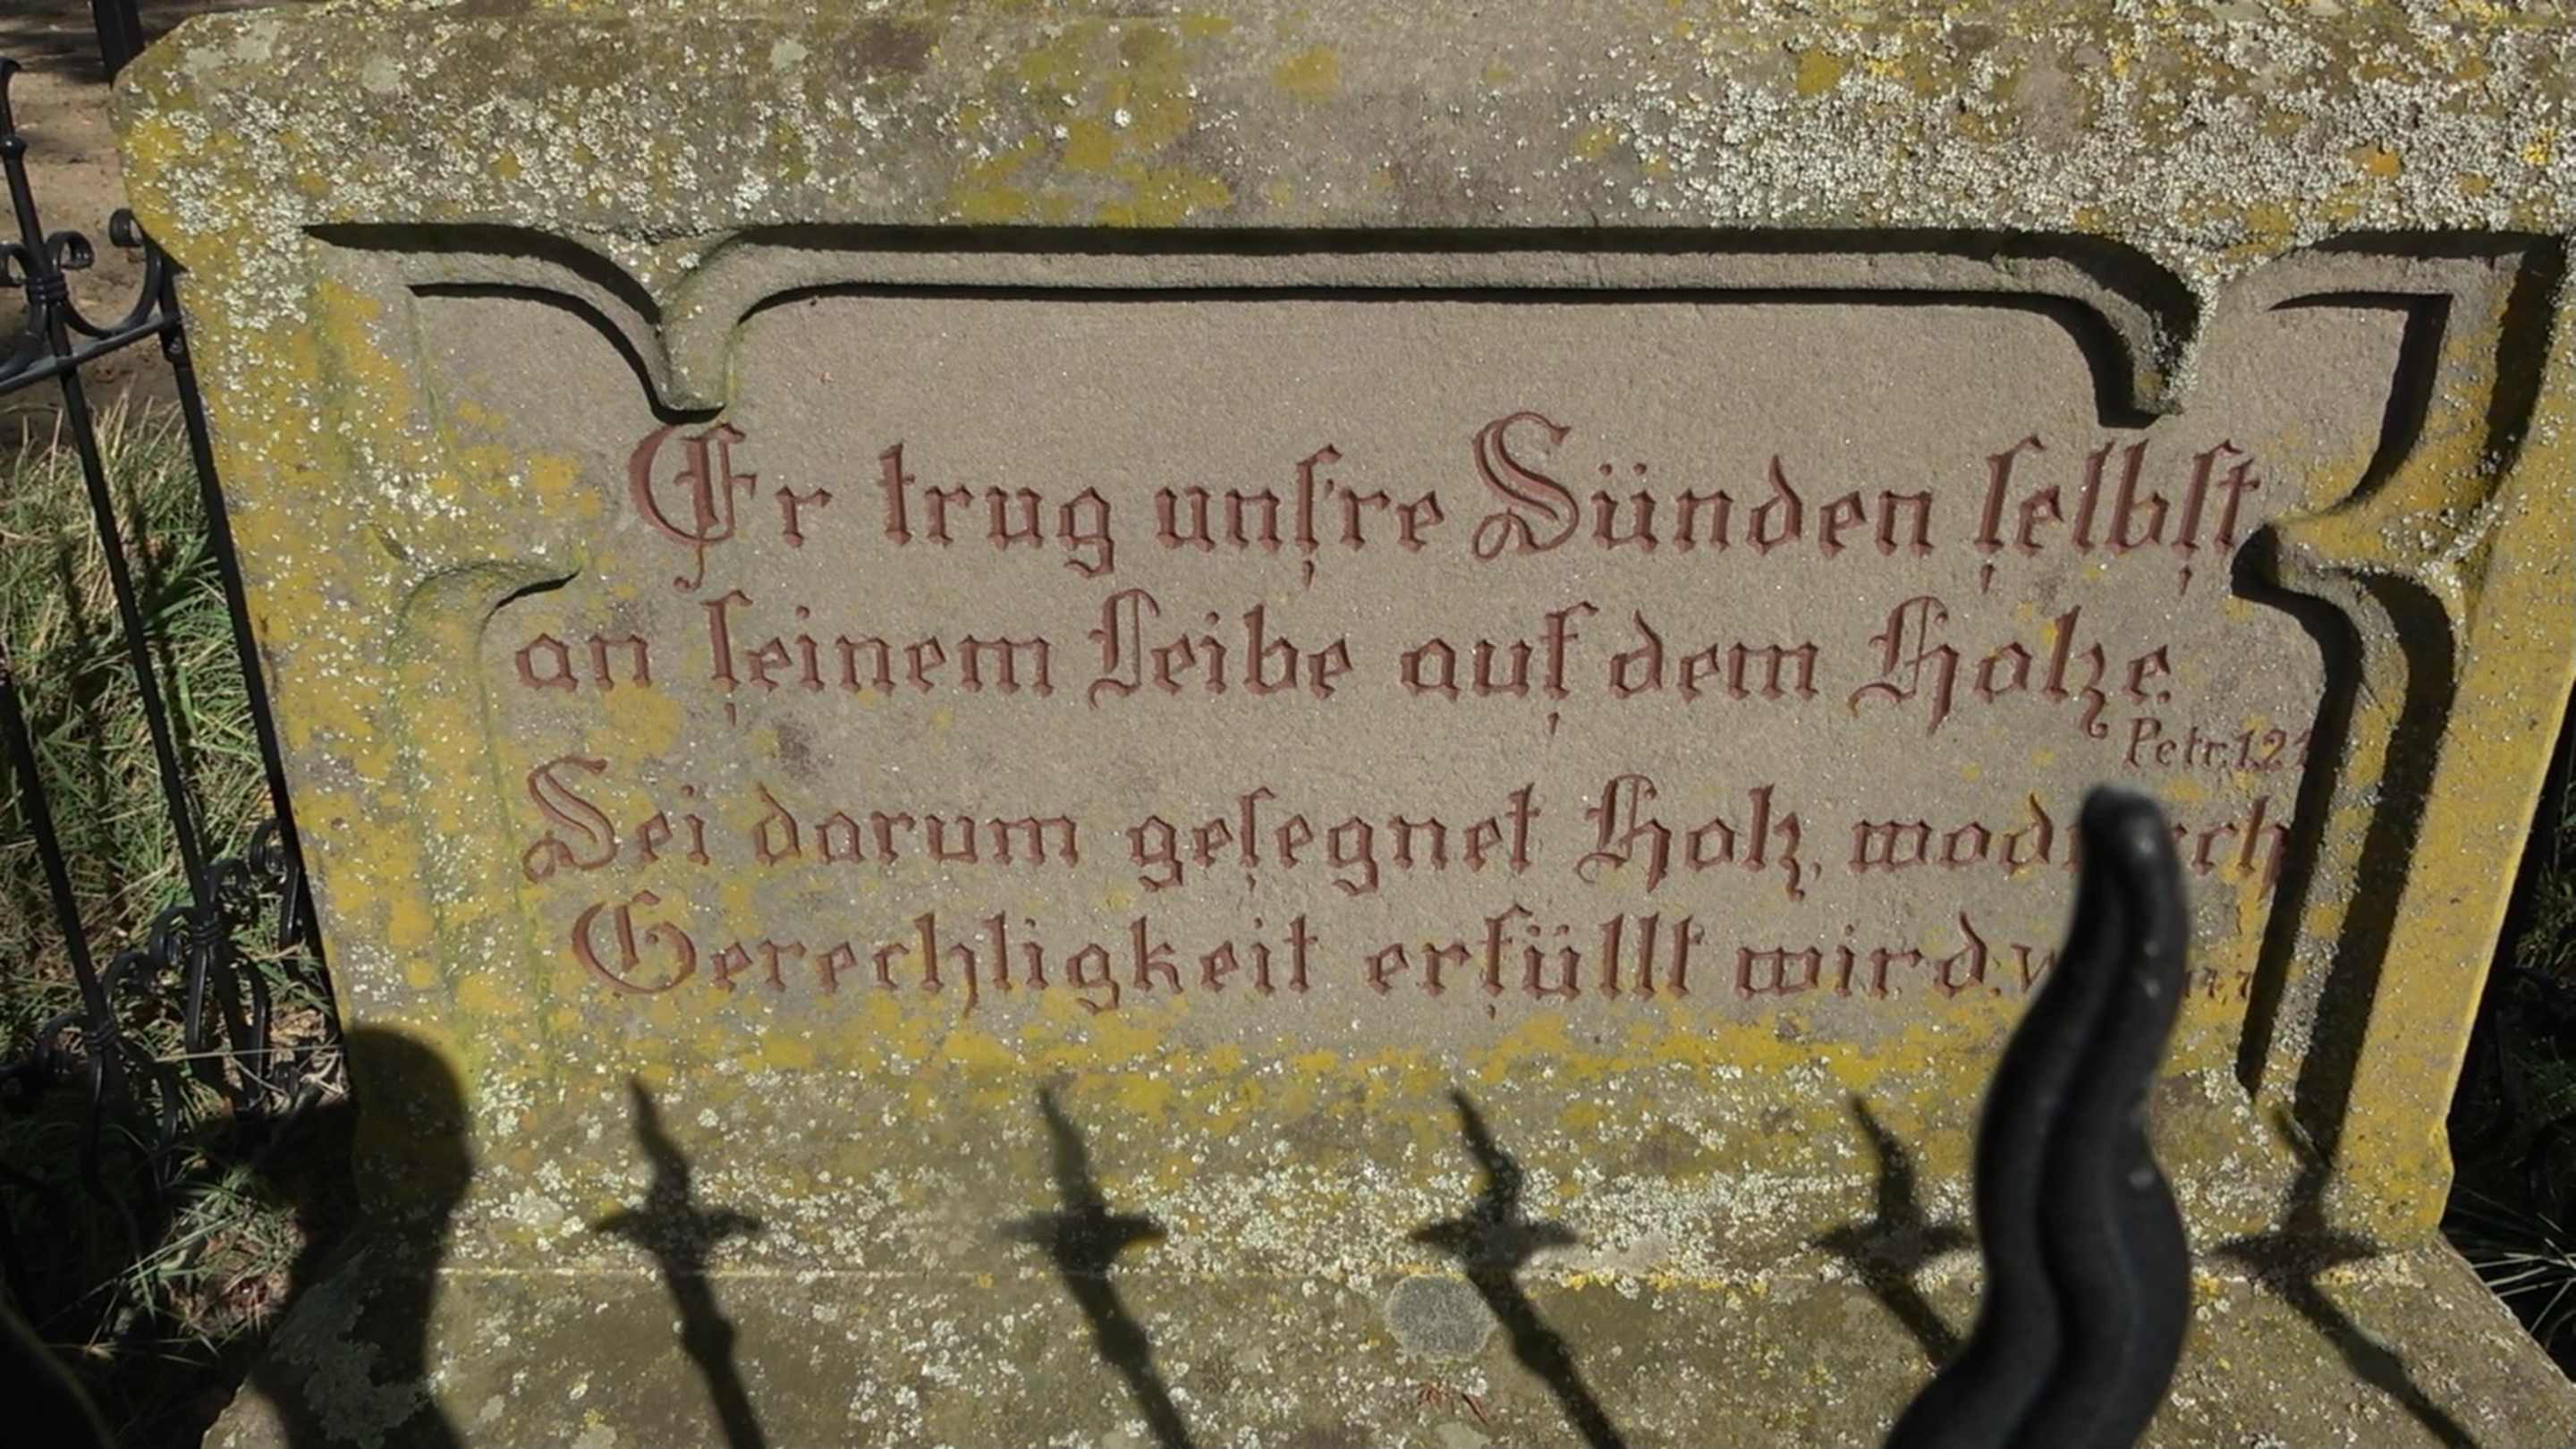 Er trug unſ're Sünden ſelbſt
an ſeinem Leibe auf dem Holze.
Petr. 1.2
Sei darum geſegnet Holz, 
Gerechtigkeit erfüllt wird.